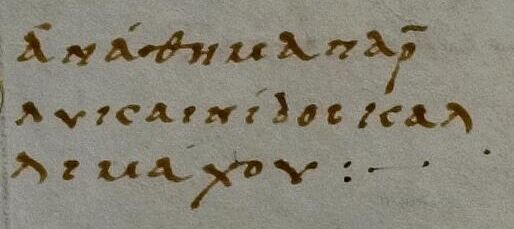 ἀνάθημα παρ
λυκαινίδος καλ
λιμάχου :—